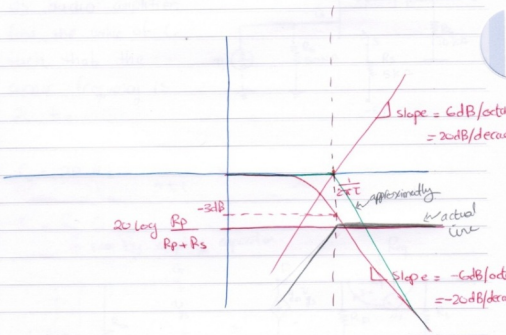 slope = 6dB/octa
= 20dB/decad
1
2πτ
approximately
-3dB
actual
line
20 log Rp
Rp+Rs
slope = -6dB/oct
= -20dB/deca